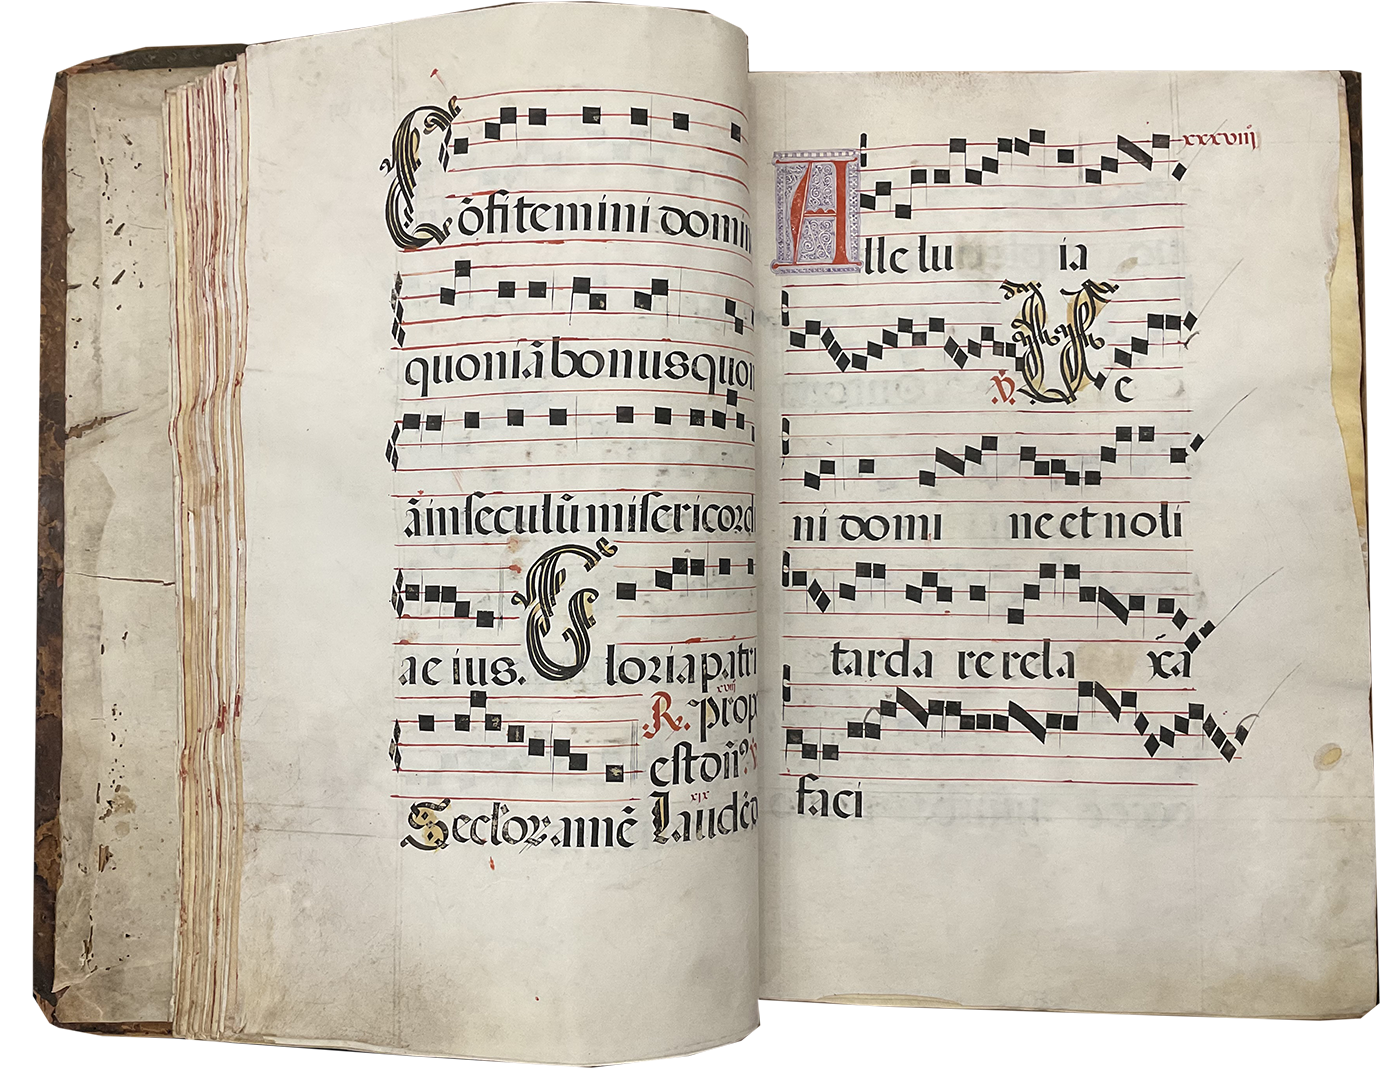 Cōfitemini domin
quoniā bonus quon
ā in seculū misericord
a eius. Gloria patri
xviij
.R. prope
est dn̄s
xix
Seclor amē Laudē d
xxxviij
Alle lu ia
℣. Ve
ni domi ne et noli
tarda re rela xa
faci